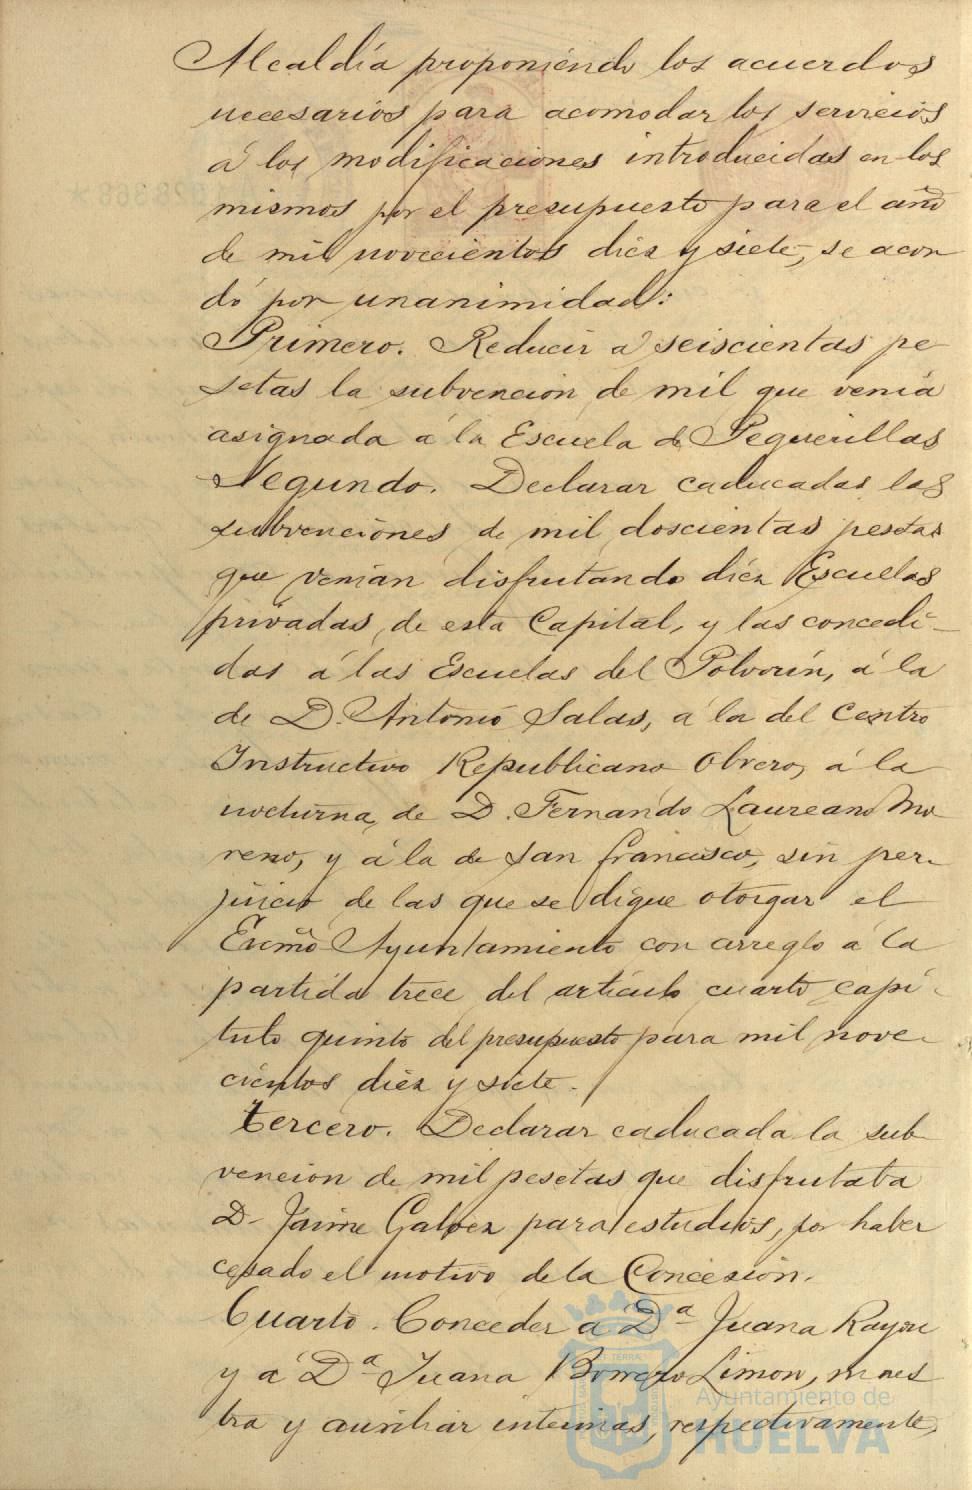 Alcaldía proponiendo los acuerdos
necesarios para acomodar los servicios
á los modificaciones introducidas en los
mismos por el presupuesto para el año
de mil novecientos diez y siete, se acor
dó por unanimidad:
Primero. Reducir a seiscientas pe
setas la subvencion de mil que venía
asignada á la Escuela de Peguerillas
Segundo. Declarar caducadas las
subvenciones de mil doscientas pesetas
que venian disfrutando diez Escuelas
privadas, de esta Capital, y las concedi-
das á las Escuelas del Polvorín, á la
de D. Antonio Salas, á la del Centro
Instructivo Republicano Obrero, á la
nocturna, de D. Fernando Laureano Mo
reno, y á la de San Francisco, sin per-
juicio de las que se digue otorgar el
Excmo Ayuntamiento con arreglo á la
partida trece del artículo cuarto capí-
tulo quinto del presupuesto para mil nove-
cientos diez y siete.
Tercero. Declarar caducada la sub
vencion de mil pesetas que disfrutaba
D. Jaime Galvez para estudios, por haber
cesado el motivo de la Concesión.
Cuarto. Conceder a Dª Juana Rayon
y a Dª Juana Borrero Limon, maes
tra y auxiliar interinas, respectivamente,
Ayuntamiento de
HUELVA